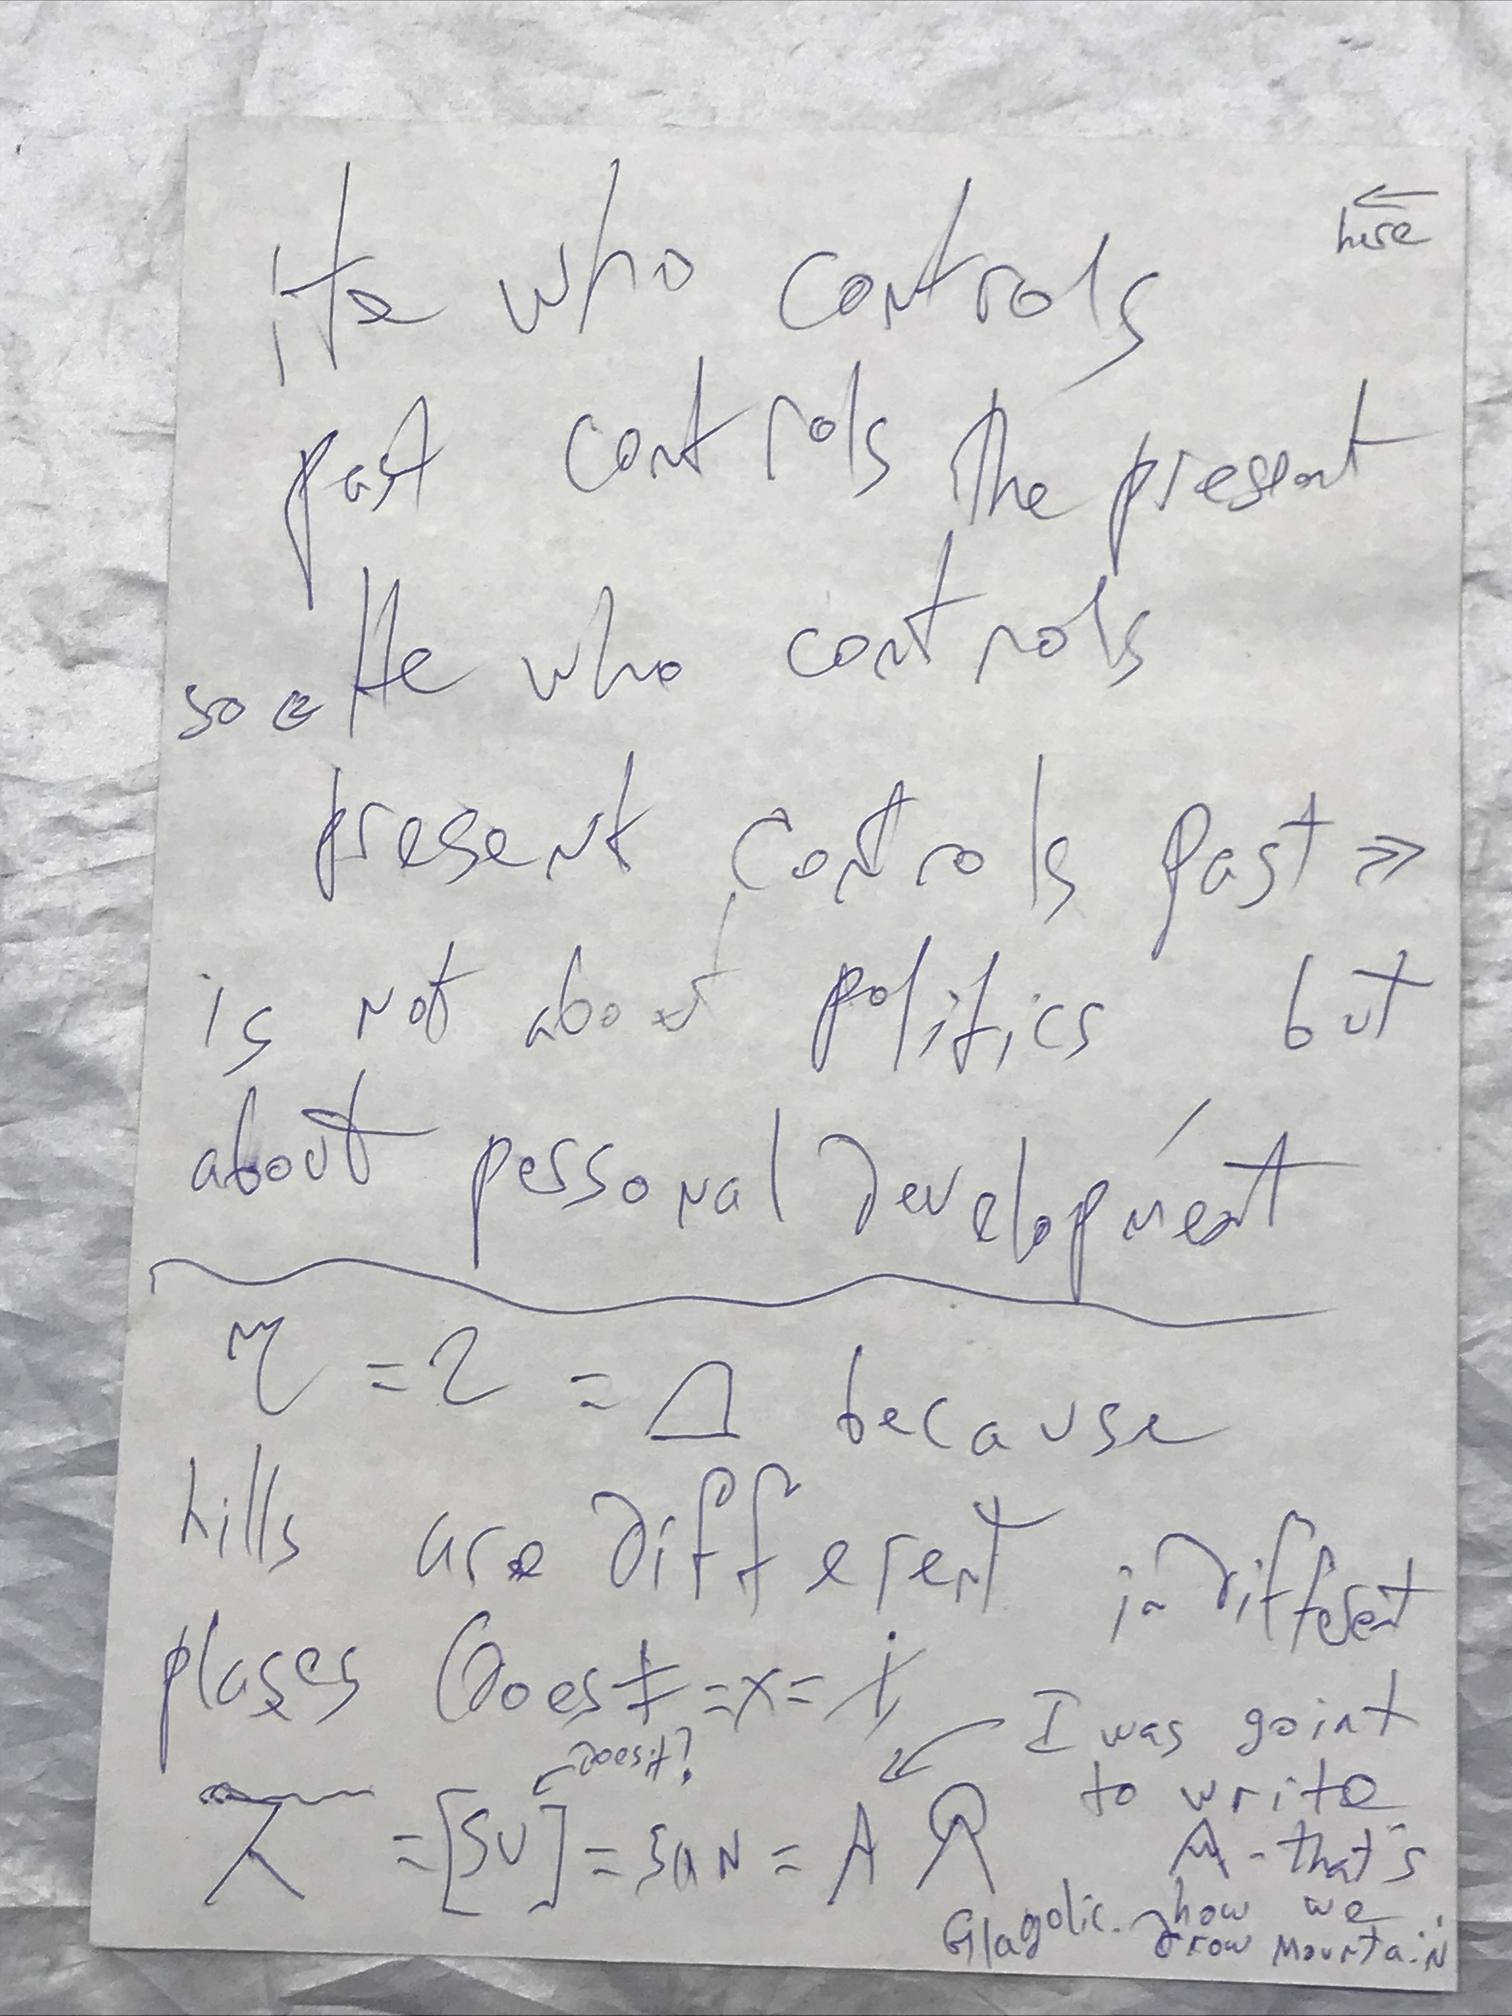 ← here
He who controls
past controls the present
so He who controls
present controls past »
is not about politics but
about personal development
= 2 = because
hills are different in different
plases (Does ‡ = x = i
Does it?
= [SU] = SAN = A
I was goint
to write
- that's
how we
drow mountain
Glagolic.